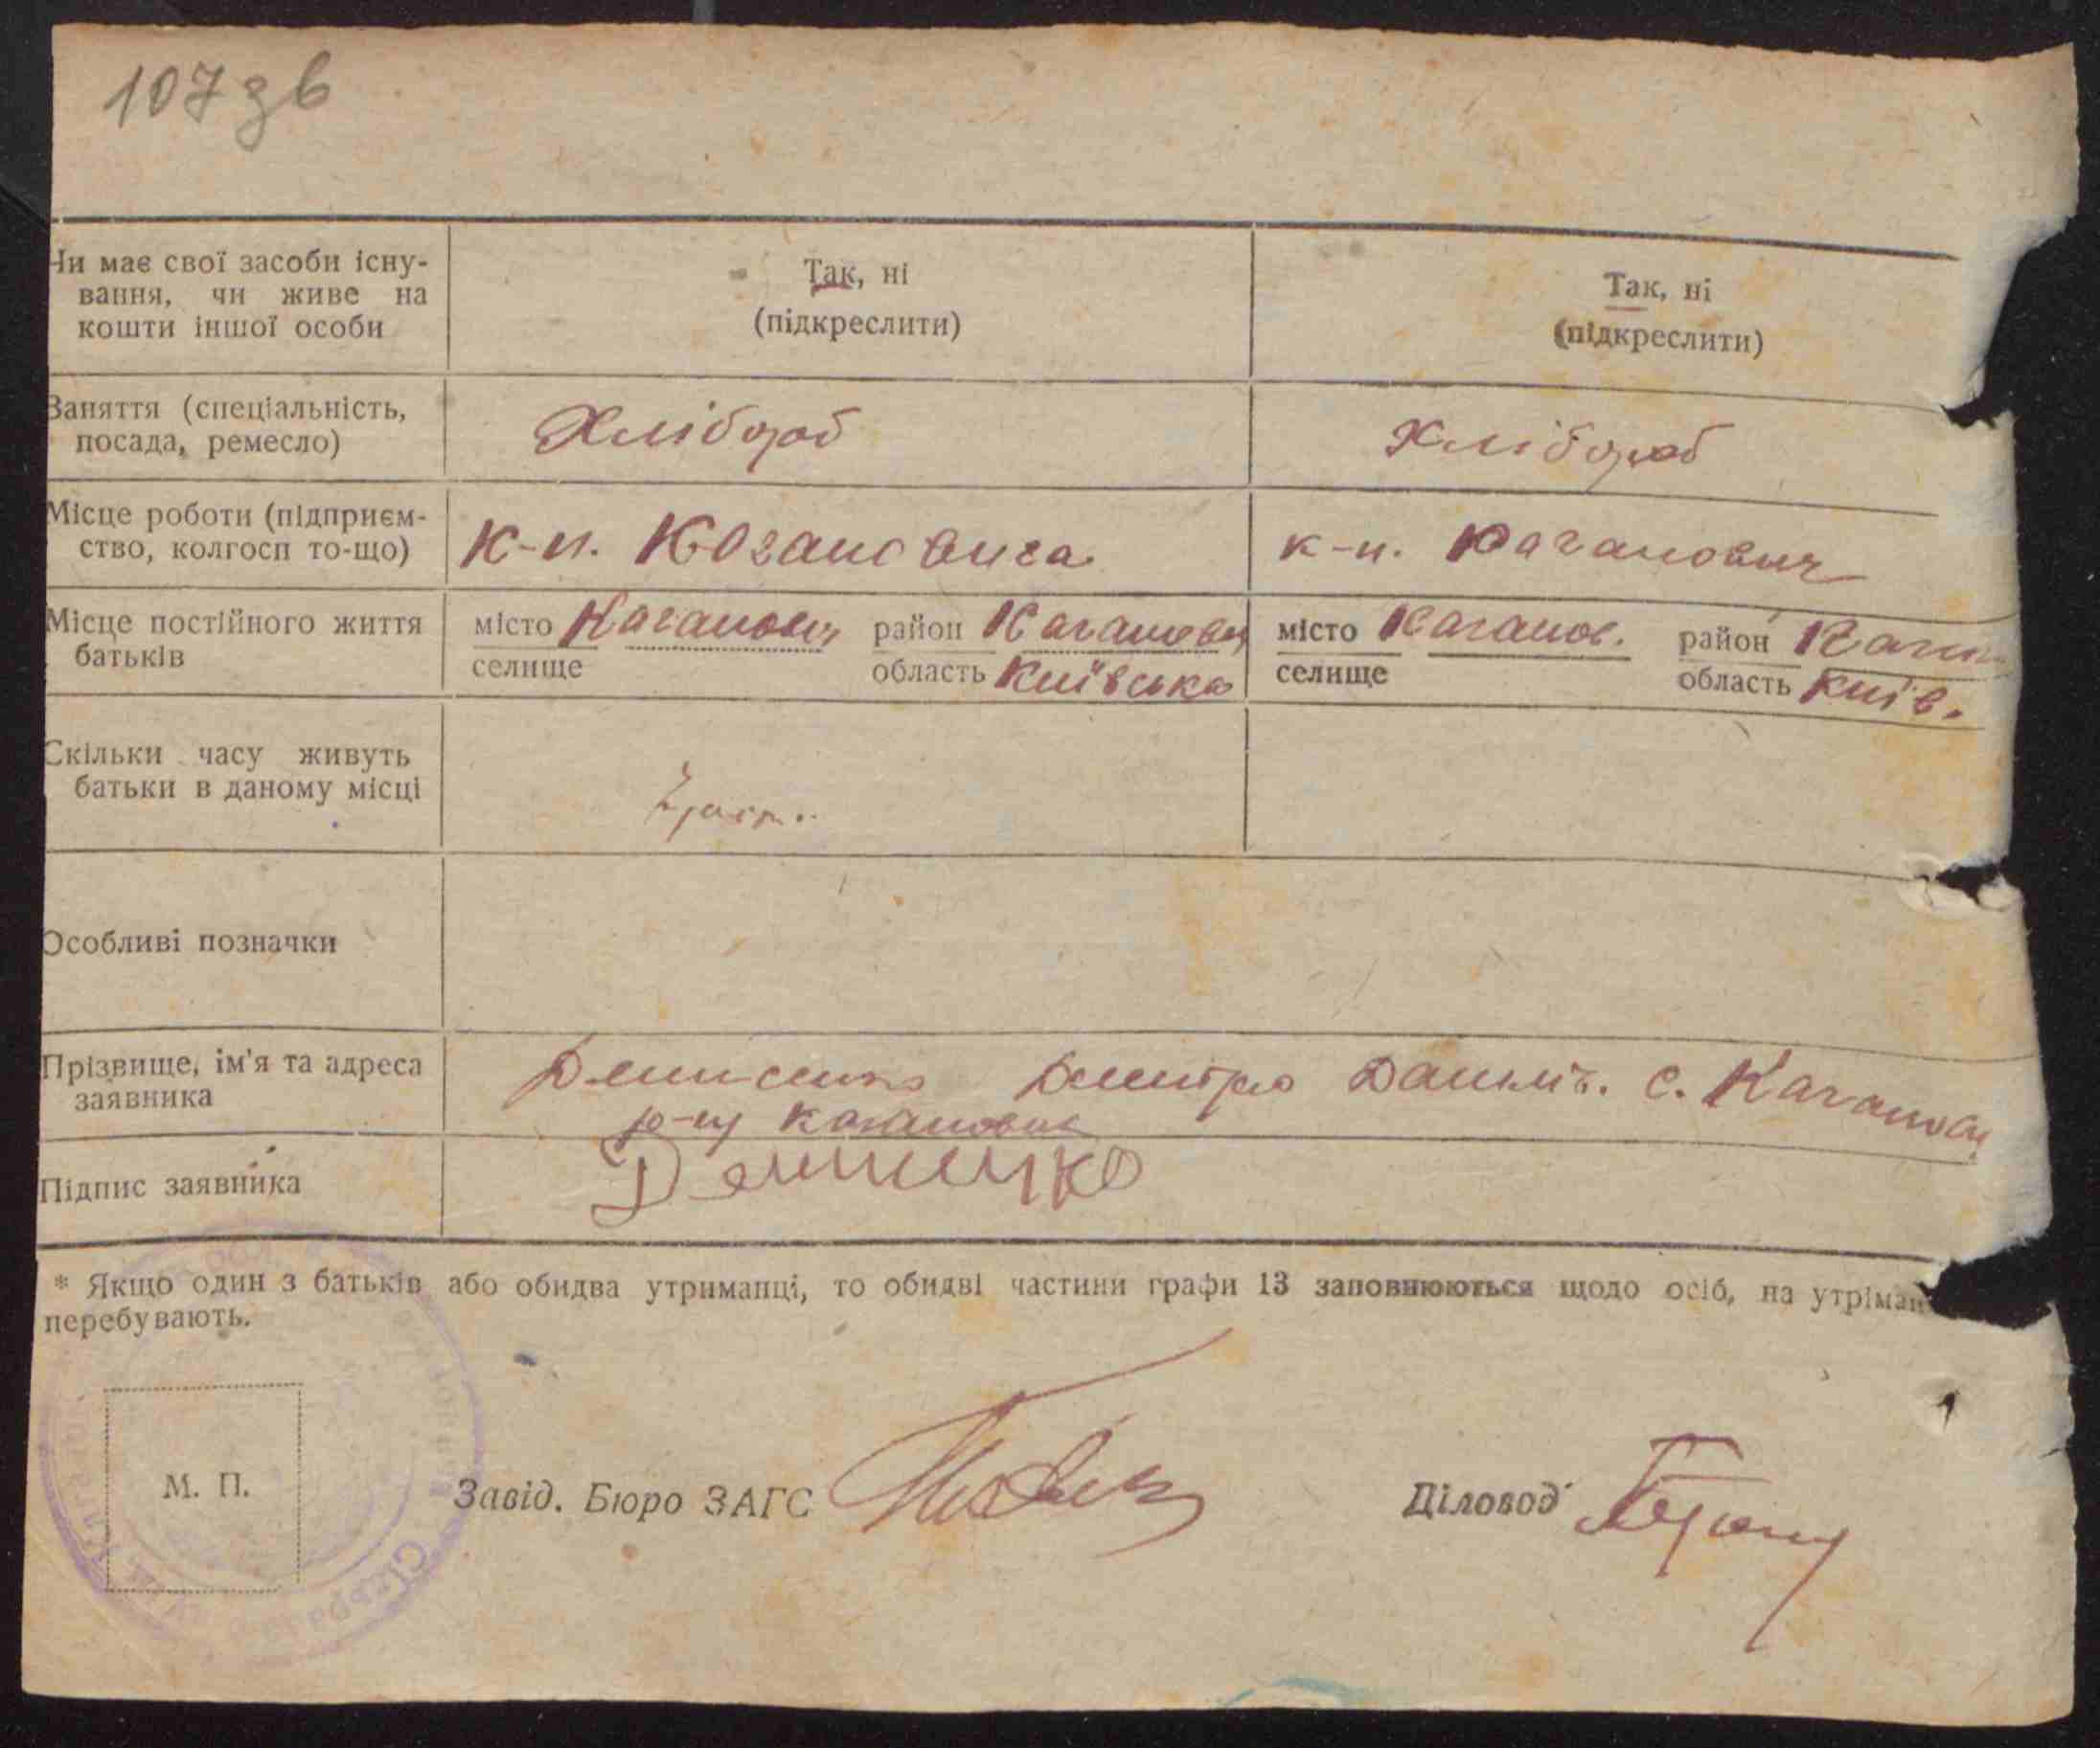 107 зв
Чи має свої засоби існу-
вання, чи живе на
кошти іншої особи
Так, ні
(підкреслити)
Так, ні
(підкреслити)
Заняття (спеціальність,
посада, ремесло)
Хлібороб
Хлібороб
Місце роботи (підприєм-
ство, колгосп то-що)
к-п. Кагановича
к-п. Каганович
Місце постійного життя
батьків
місто Каганович район Каганович
селище область Київська
місто Каганов. район Каган
селище область Київ.
Скільки часу живуть
батьки в даному місці
Особливі позначки
Прізвище, ім'я та адреса
заявника
Денисенко Дмитро Данил. с. Каганович
р-ну Каганович
Підпис заявника
* Якщо один з батьків або обидва утриманці, то обидві частини графи 13 заповнюються щодо осіб, на утріман
перебувають.
М. П.
Завід. Бюро ЗАГС
Діловод